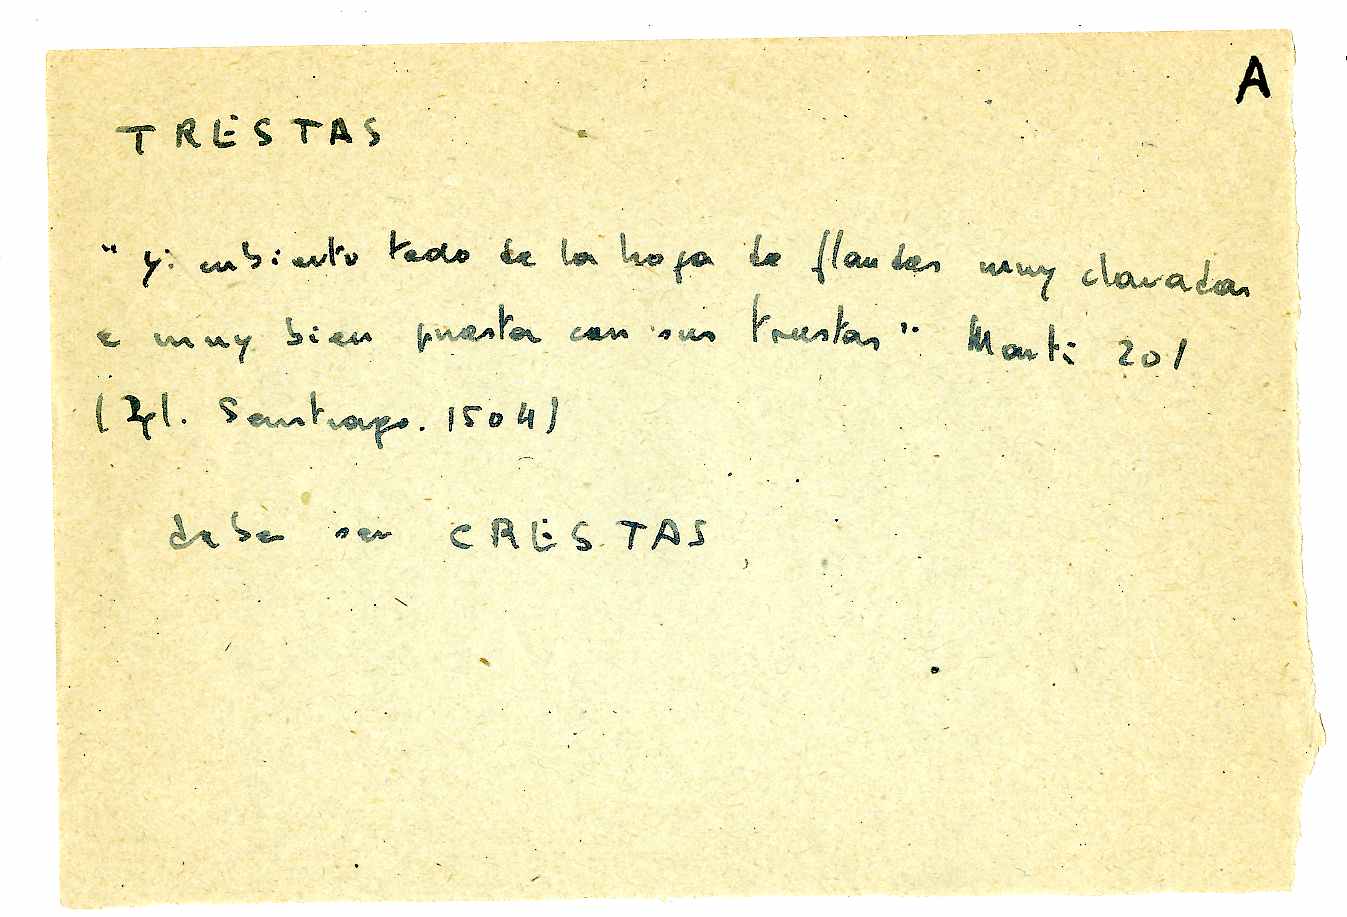 A
TRESTAS
" y: cubierto todo de la hoja de flandes muy clavadas
e muy bien puesta con sus trestas". Marti 201
(Igl. Santiago. 1504)
debe ser CRESTAS